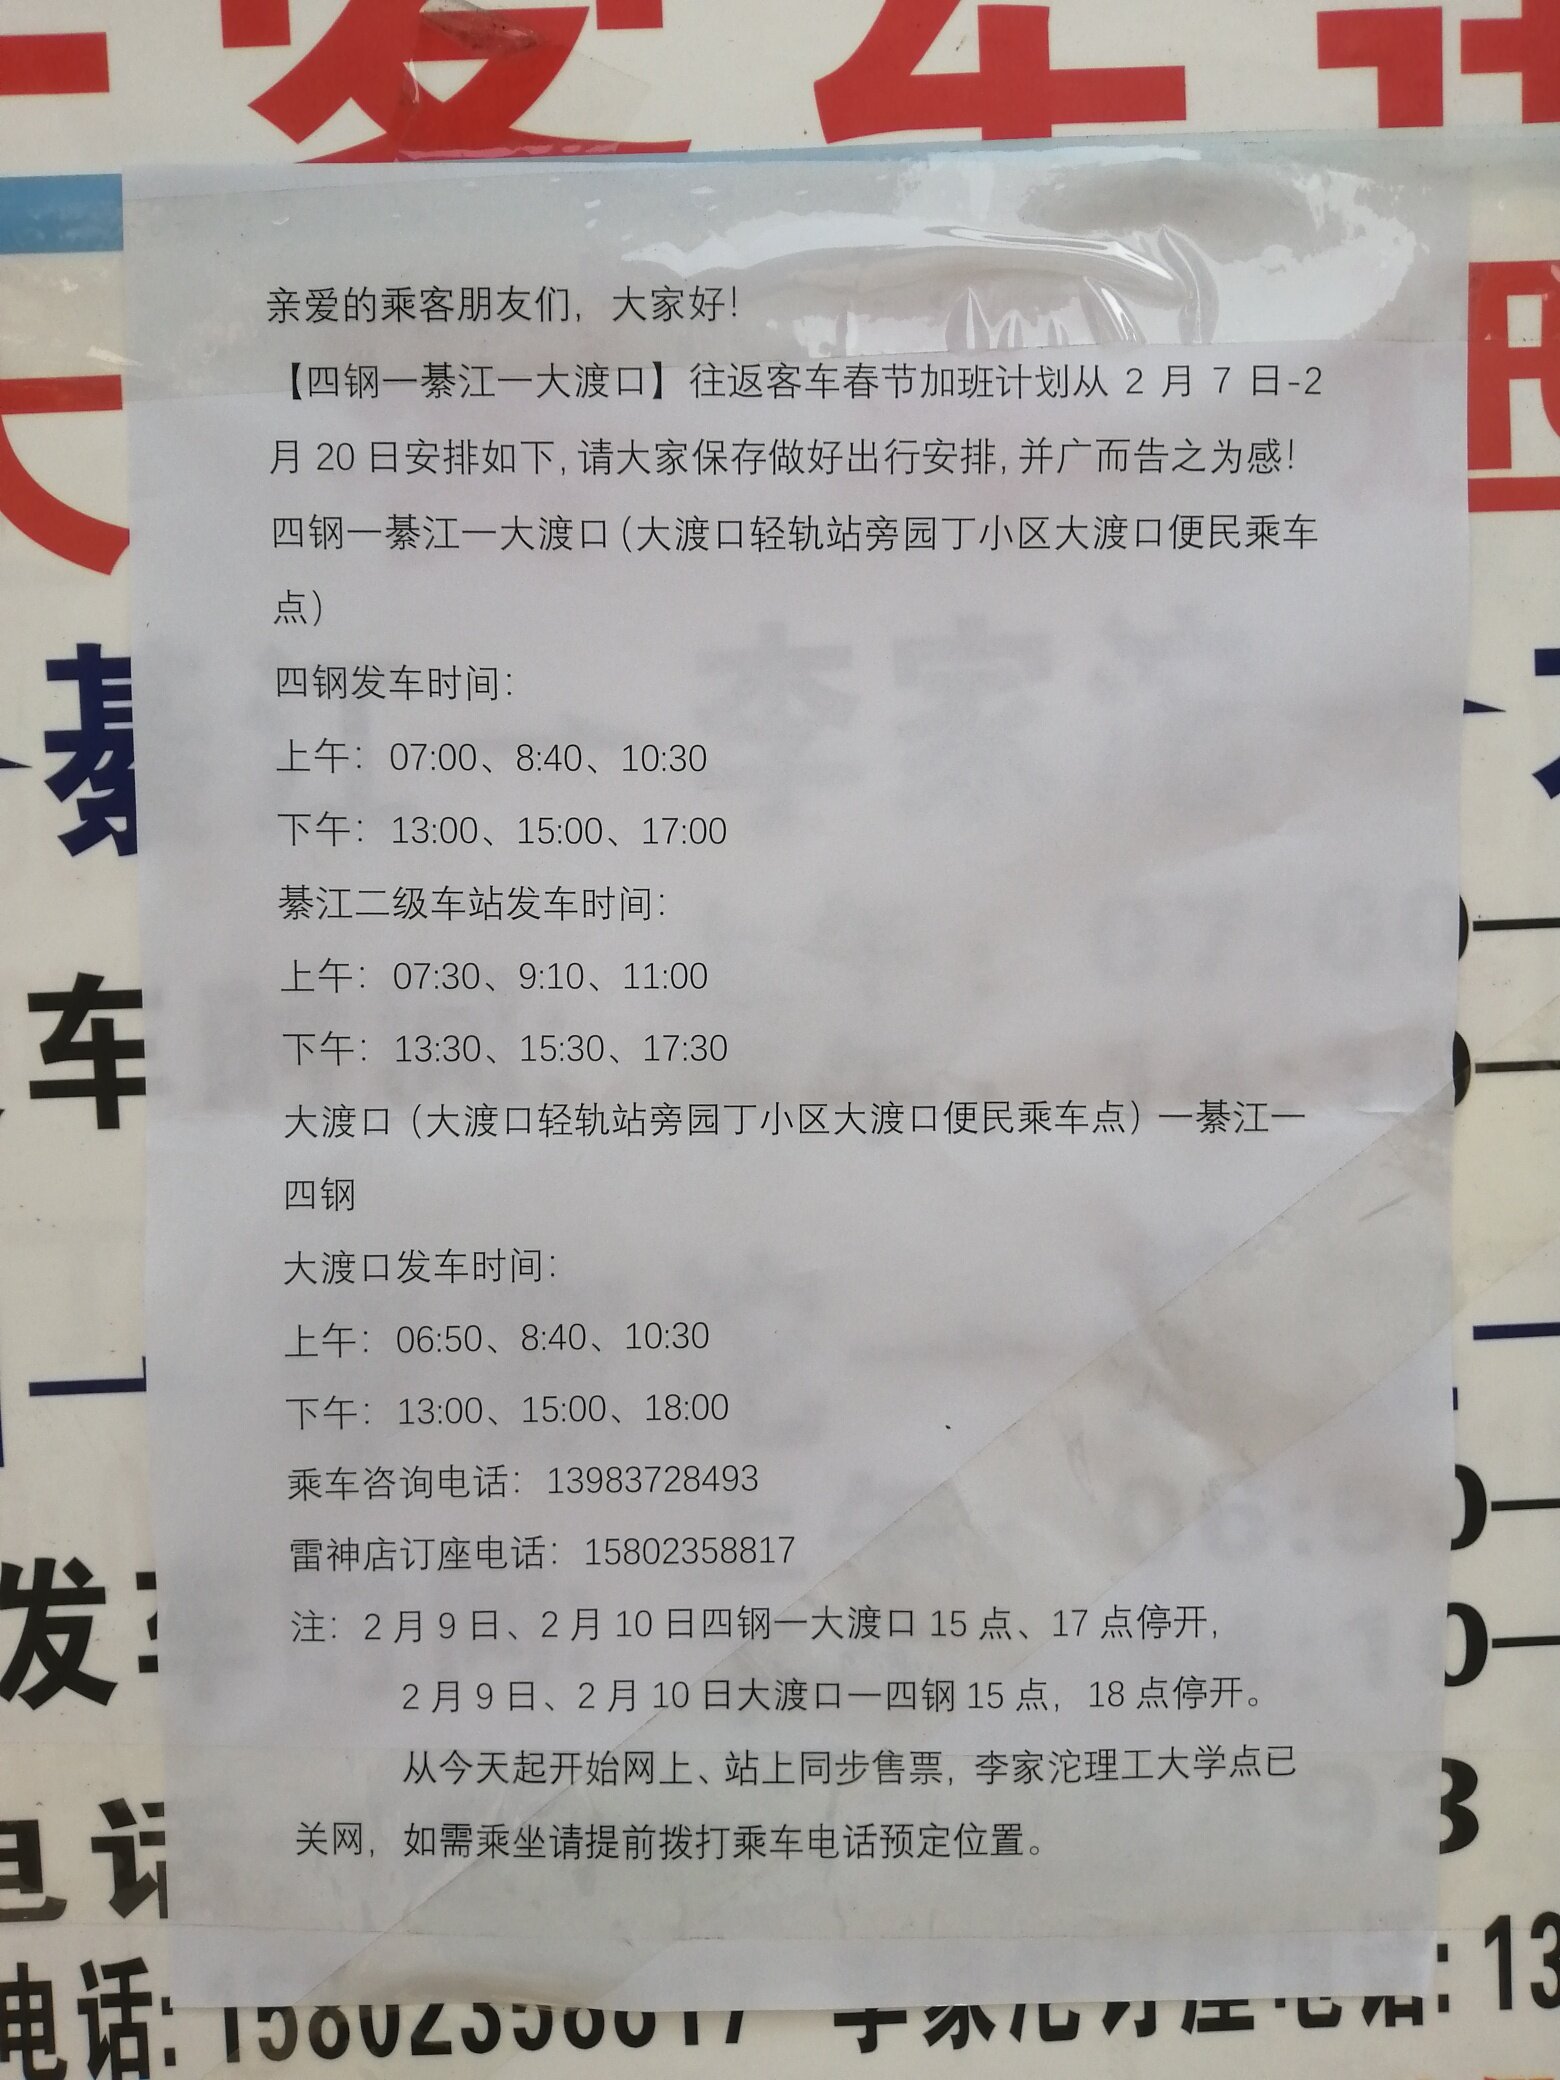 发车
亲爱的乘客朋友们，大家好！
【四钢一綦江一大渡口】往返客车春节加班计划从 2 月 7 日-2
月 20 日安排如下，请大家保存做好出行安排，并广而告之为感！
四钢一綦江一大渡口（大渡口轻轨站旁园丁小区大渡口便民乘车
点）
四钢发车时间：
上午：07:00、8:40、10:30
下午：13:00、15:00、17:00
綦江二级车站发车时间：
上午：07:30、9:10、11:00
下午：13:30、15:30、17:30
大渡口（大渡口轻轨站旁园丁小区大渡口便民乘车点）一綦江一
四钢
大渡口发车时间：
上午：06:50、8:40、10:30
下午：13:00、15:00、18:00
乘车咨询电话：13983728493
雷神店订座电话：15802358817
注：2 月 9 日、2 月 10 日四钢一大渡口 15 点、17 点停开，
2 月 9 日、2 月 10 日大渡口一四钢 15 点，18 点停开。
从今天起开始网上、站上同步售票，李家沱理工大学点已
关网，如需乘坐请提前拨打乘车电话预定位置。
綦
车
发
电话
电话：15802358817 李家沱订座电话：13